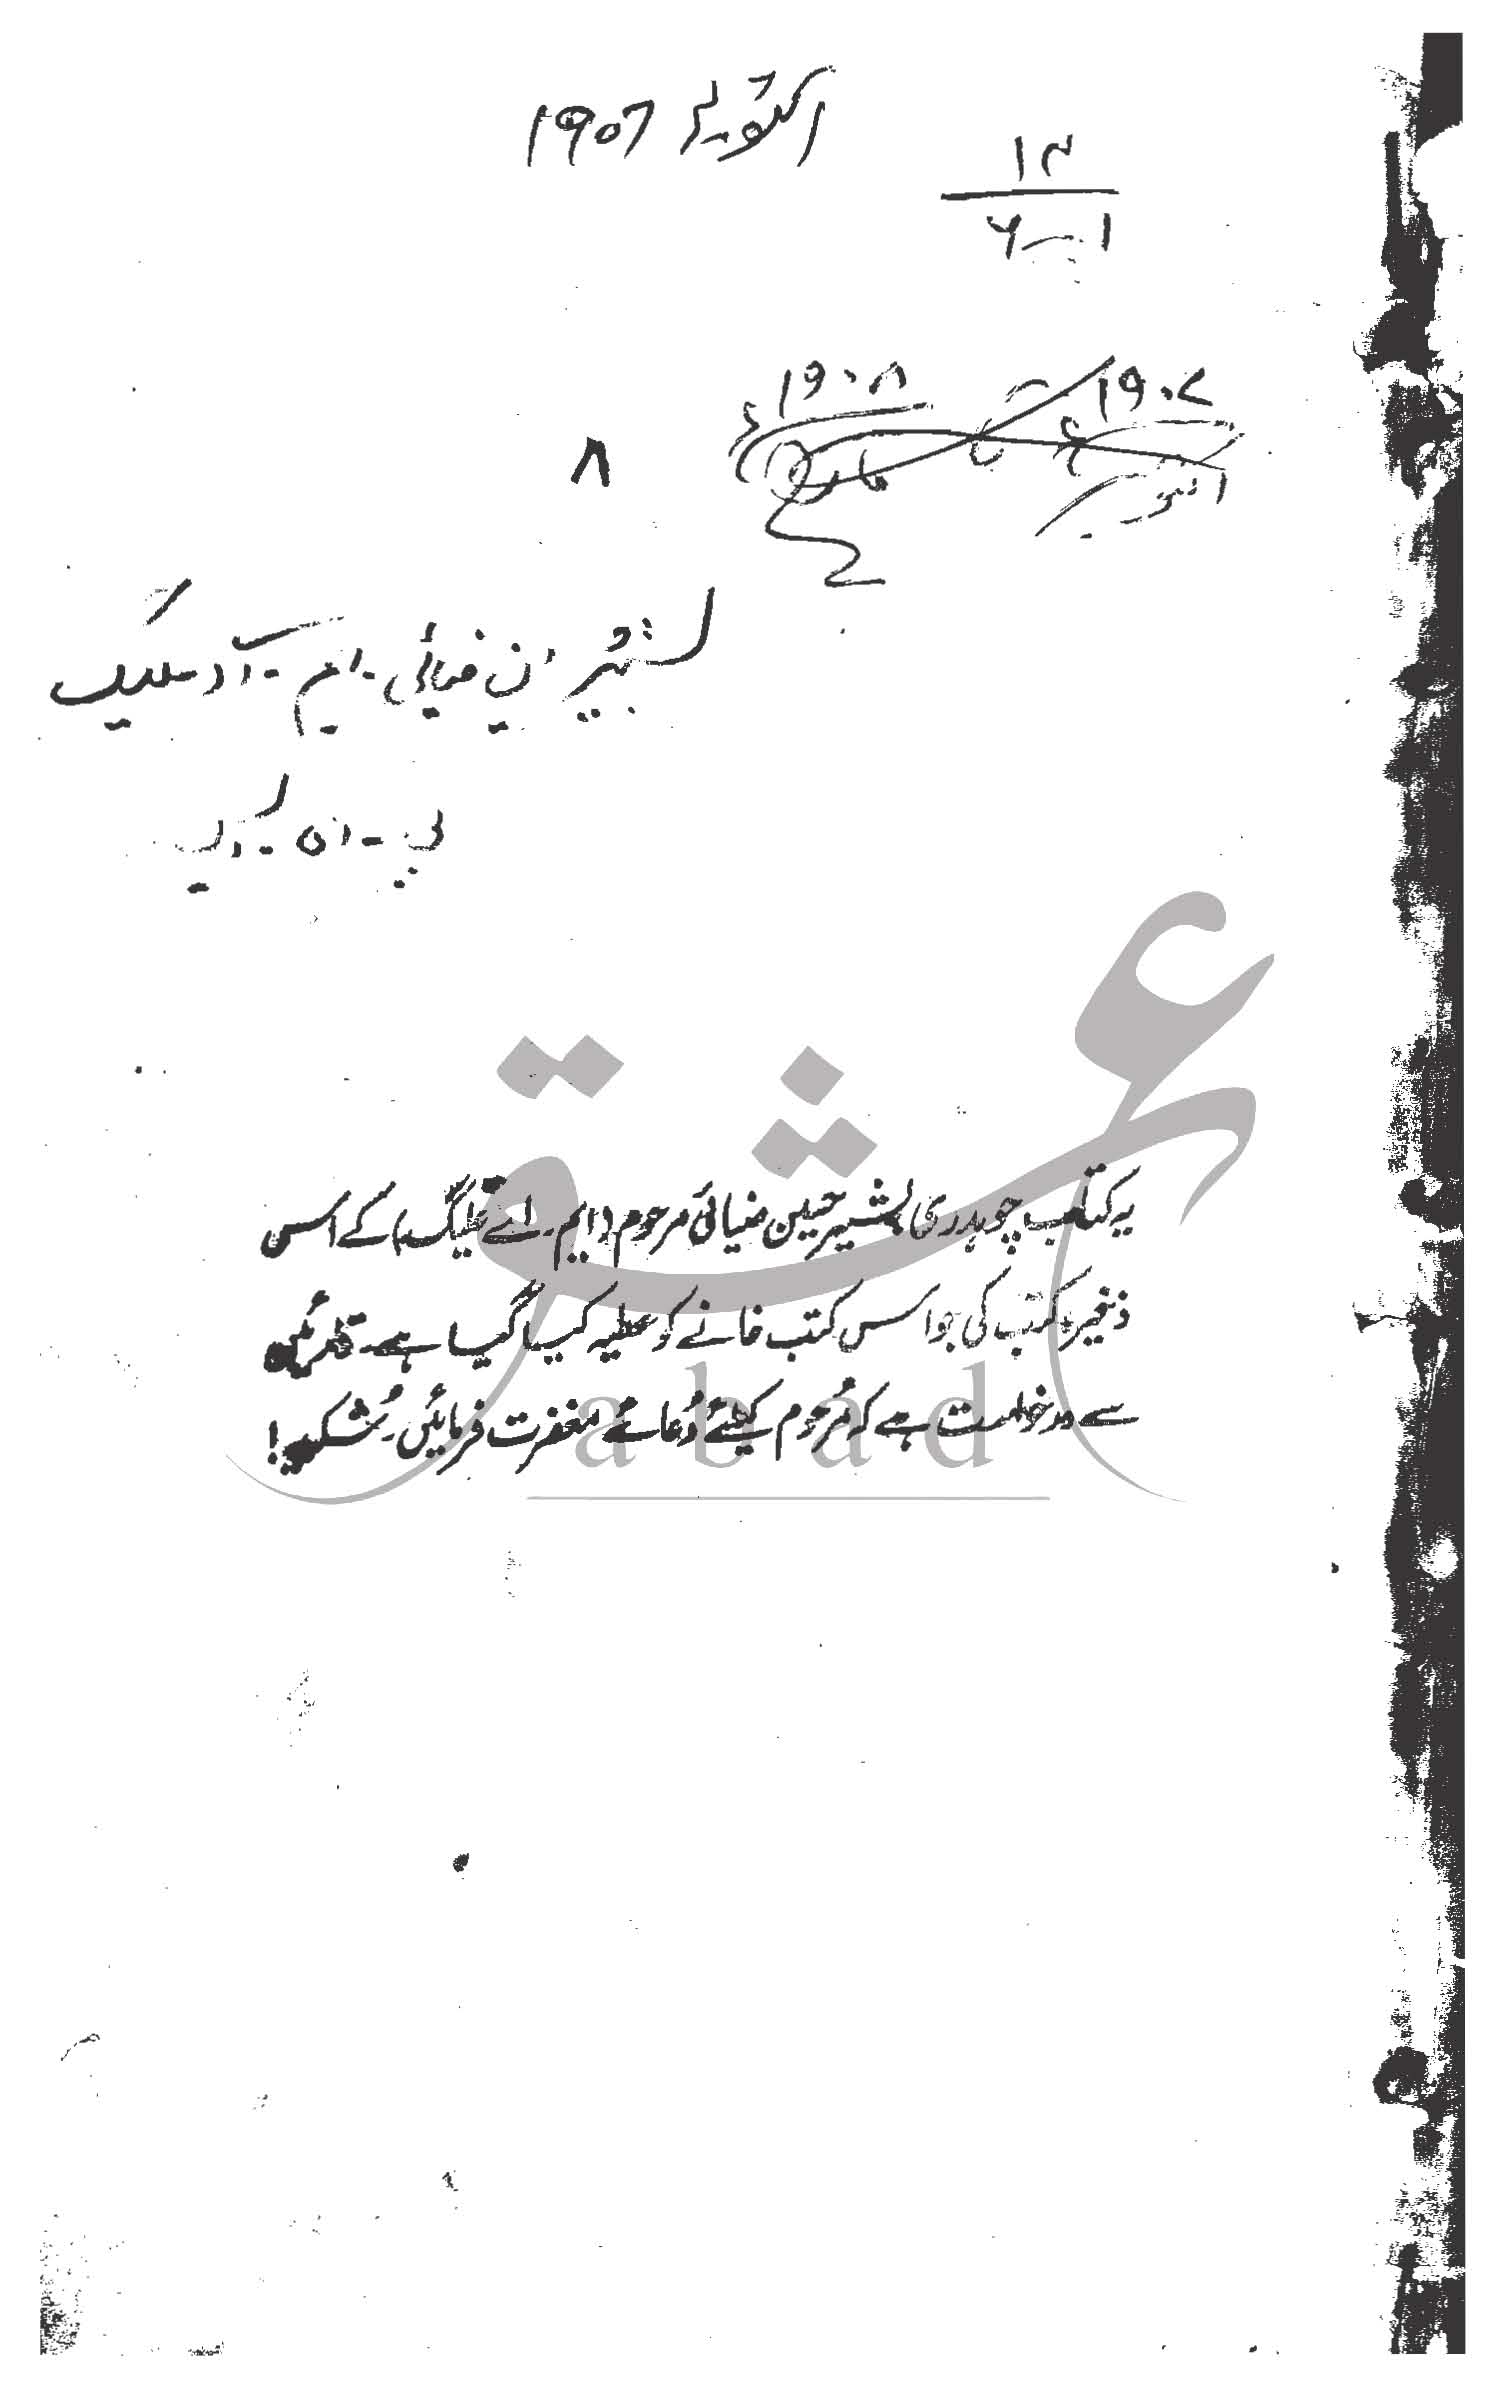 اکتوبر ۱۹۰۶
۱۳
۱۹۰۷ ۱۹۰۸
اکتوبر تا مارچ
۸
بشیر این ضیائی - ایم - اے - علیگ
پی -
عشق
abad
یہ کتاب چوہدری بشیر حسین ضیائی مرحوم (ایم۔ اے علیگ) کے اس
ذخیرہ کتب کی جو اس کتب خانے کو عطیہ کیا گیا ہے۔ قارئین
سے درخواست ہے کہ مرحوم کیلئے دُعائے مغفرت فرمائیں۔ شکریہ!